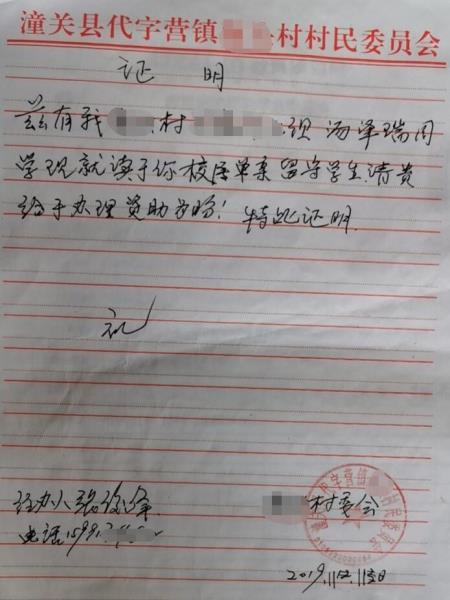 潼关县代字营镇 村村民委员会
证 明
兹有我 村 组 汤泽瑞同
学现就读于你校属单亲留守学生.请贵
给予办理资助为盼！特此证明.
经办人
电话1599
村委会
2019.11